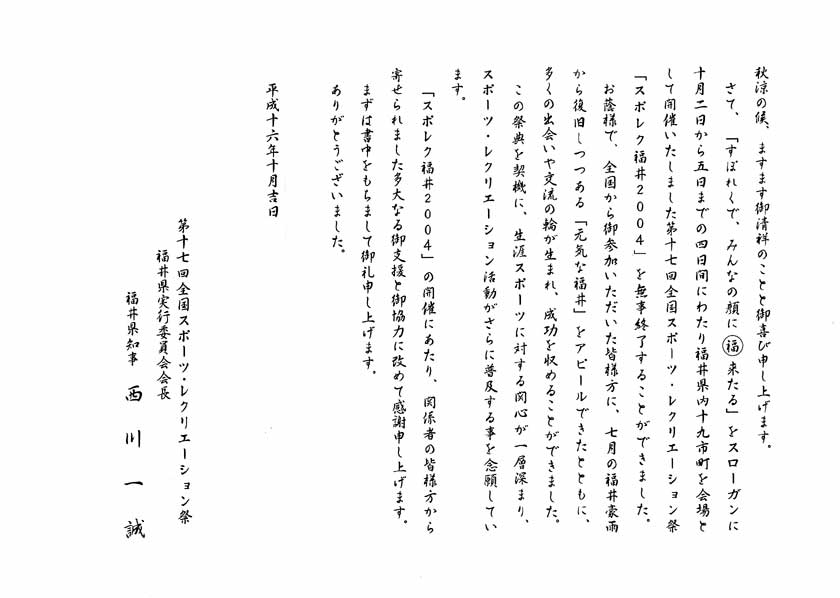 秋涼の候、ますます御清祥のことと御喜び申し上げます。
さて、「すぽれくで、みんなの顔に福来たる」をスローガンに
十月二日から五日までの四日間にわたり福井県内十九市町を会場と
して開催いたしました第十七回全国スポーツ・レクリエーション祭
「スポレク福井2004」を無事終了することができました。
お蔭様で、全国から御参加いただいた皆様方に、七月の福井豪雨
から復旧しつつある「元気な福井」をアピールできたとともに、
多くの出会いや交流の輪が生まれ、成功を収めることができました。
この祭典を契機に、生涯スポーツに対する関心が一層深まり、
スポーツ・レクリエーション活動がさらに普及する事を念願してい
ます。
「スポレク福井2004」の開催にあたり、関係者の皆様方から
寄せられました多大なる御支援と御協力に改めて感謝申し上げます。
まずは書中をもちまして御礼申し上げます。
ありがとうございました。
平成十六年十月吉日
第十七回全国スポーツ・レクリエーション祭
福井県実行委員会会長
福井県知事 西川一誠